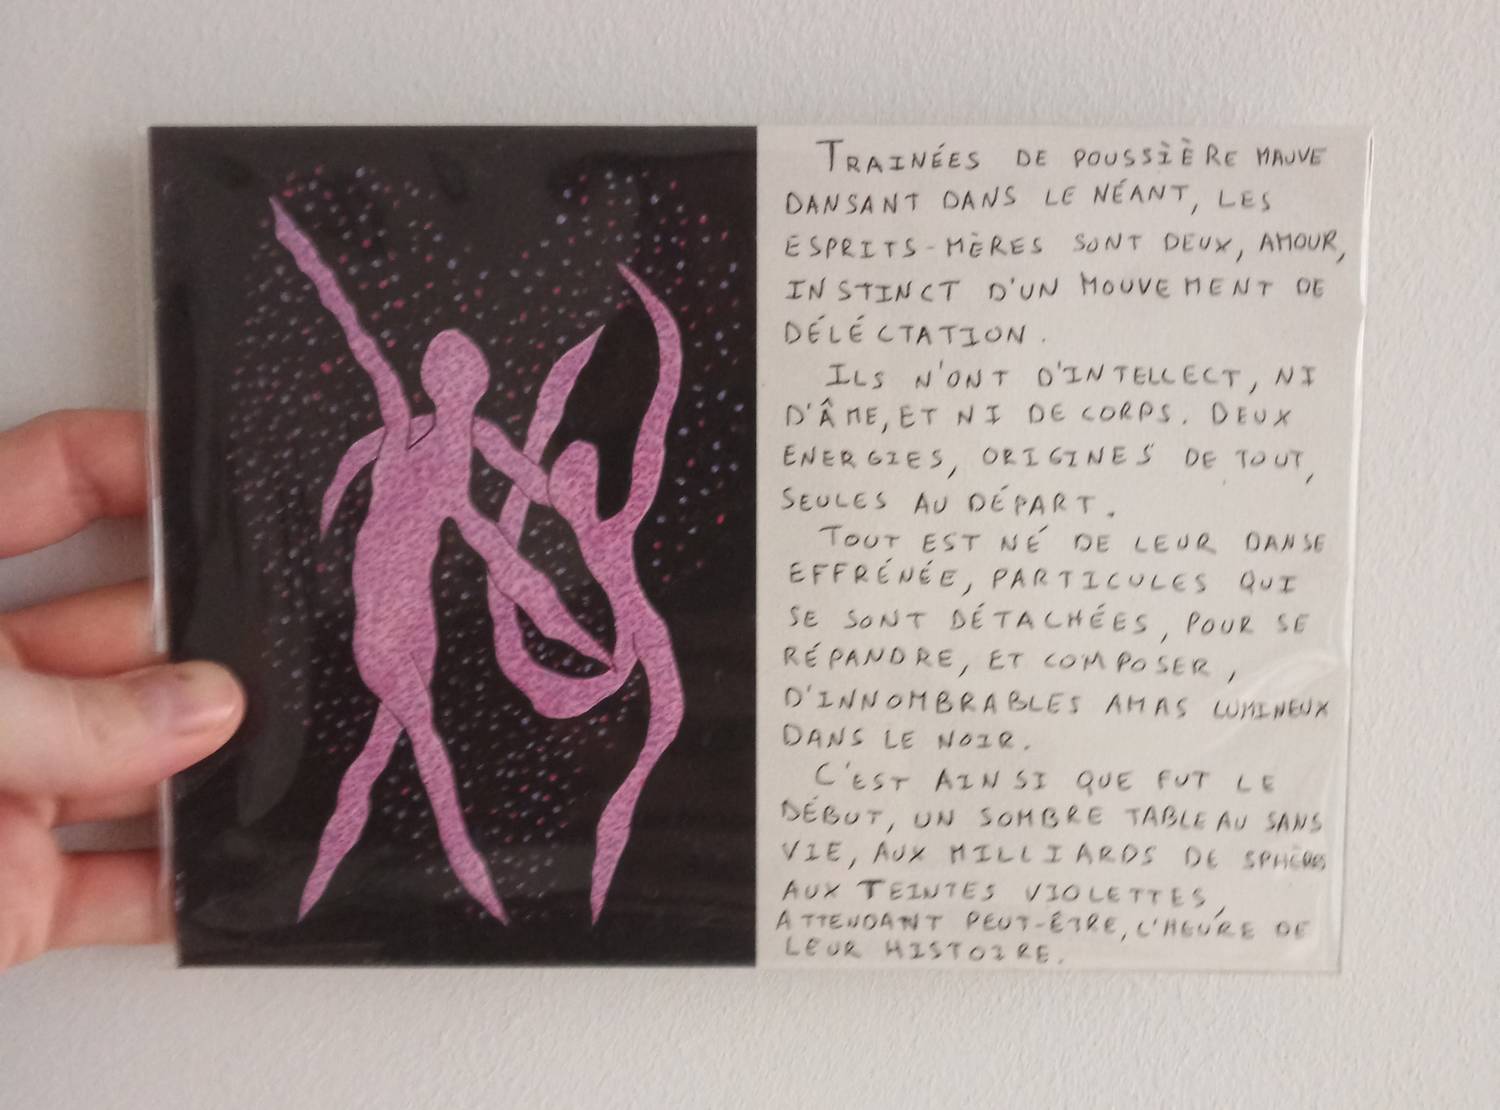 TRAINÉES DE POUSSIÈRE MAUVE
DANSANT DANS LE NÉANT, LES
ESPRITS-MÈRES SONT DEUX, AMOUR,
INSTINCT D'UN MOUVEMENT DE
DÉLÉCTATION.
ILS N'ONT D'INTELLECT, NI
D'ÂME, ET NI DE CORPS. DEUX
ENERGIES, ORIGINES DE TOUT,
SEULES AU DÉPART.
TOUT EST NÉ DE LEUR DANSE
EFFRÉNÉE, PARTICULES QUI
SE SONT DÉTACHÉES, POUR SE
RÉPANDRE, ET COMPOSER,
D'INNOMBRABLES AMAS LUMINEUX
DANS LE NOIR.
C'EST AINSI QUE FUT LE
DÉBUT, UN SOMBRE TABLEAU SANS
VIE, AUX MILLIARDS DE SPHÈRES
AUX TEINTES VIOLETTES,
ATTENDANT PEUT-ÊTRE, L'HEURE DE
LEUR HISTOIRE.